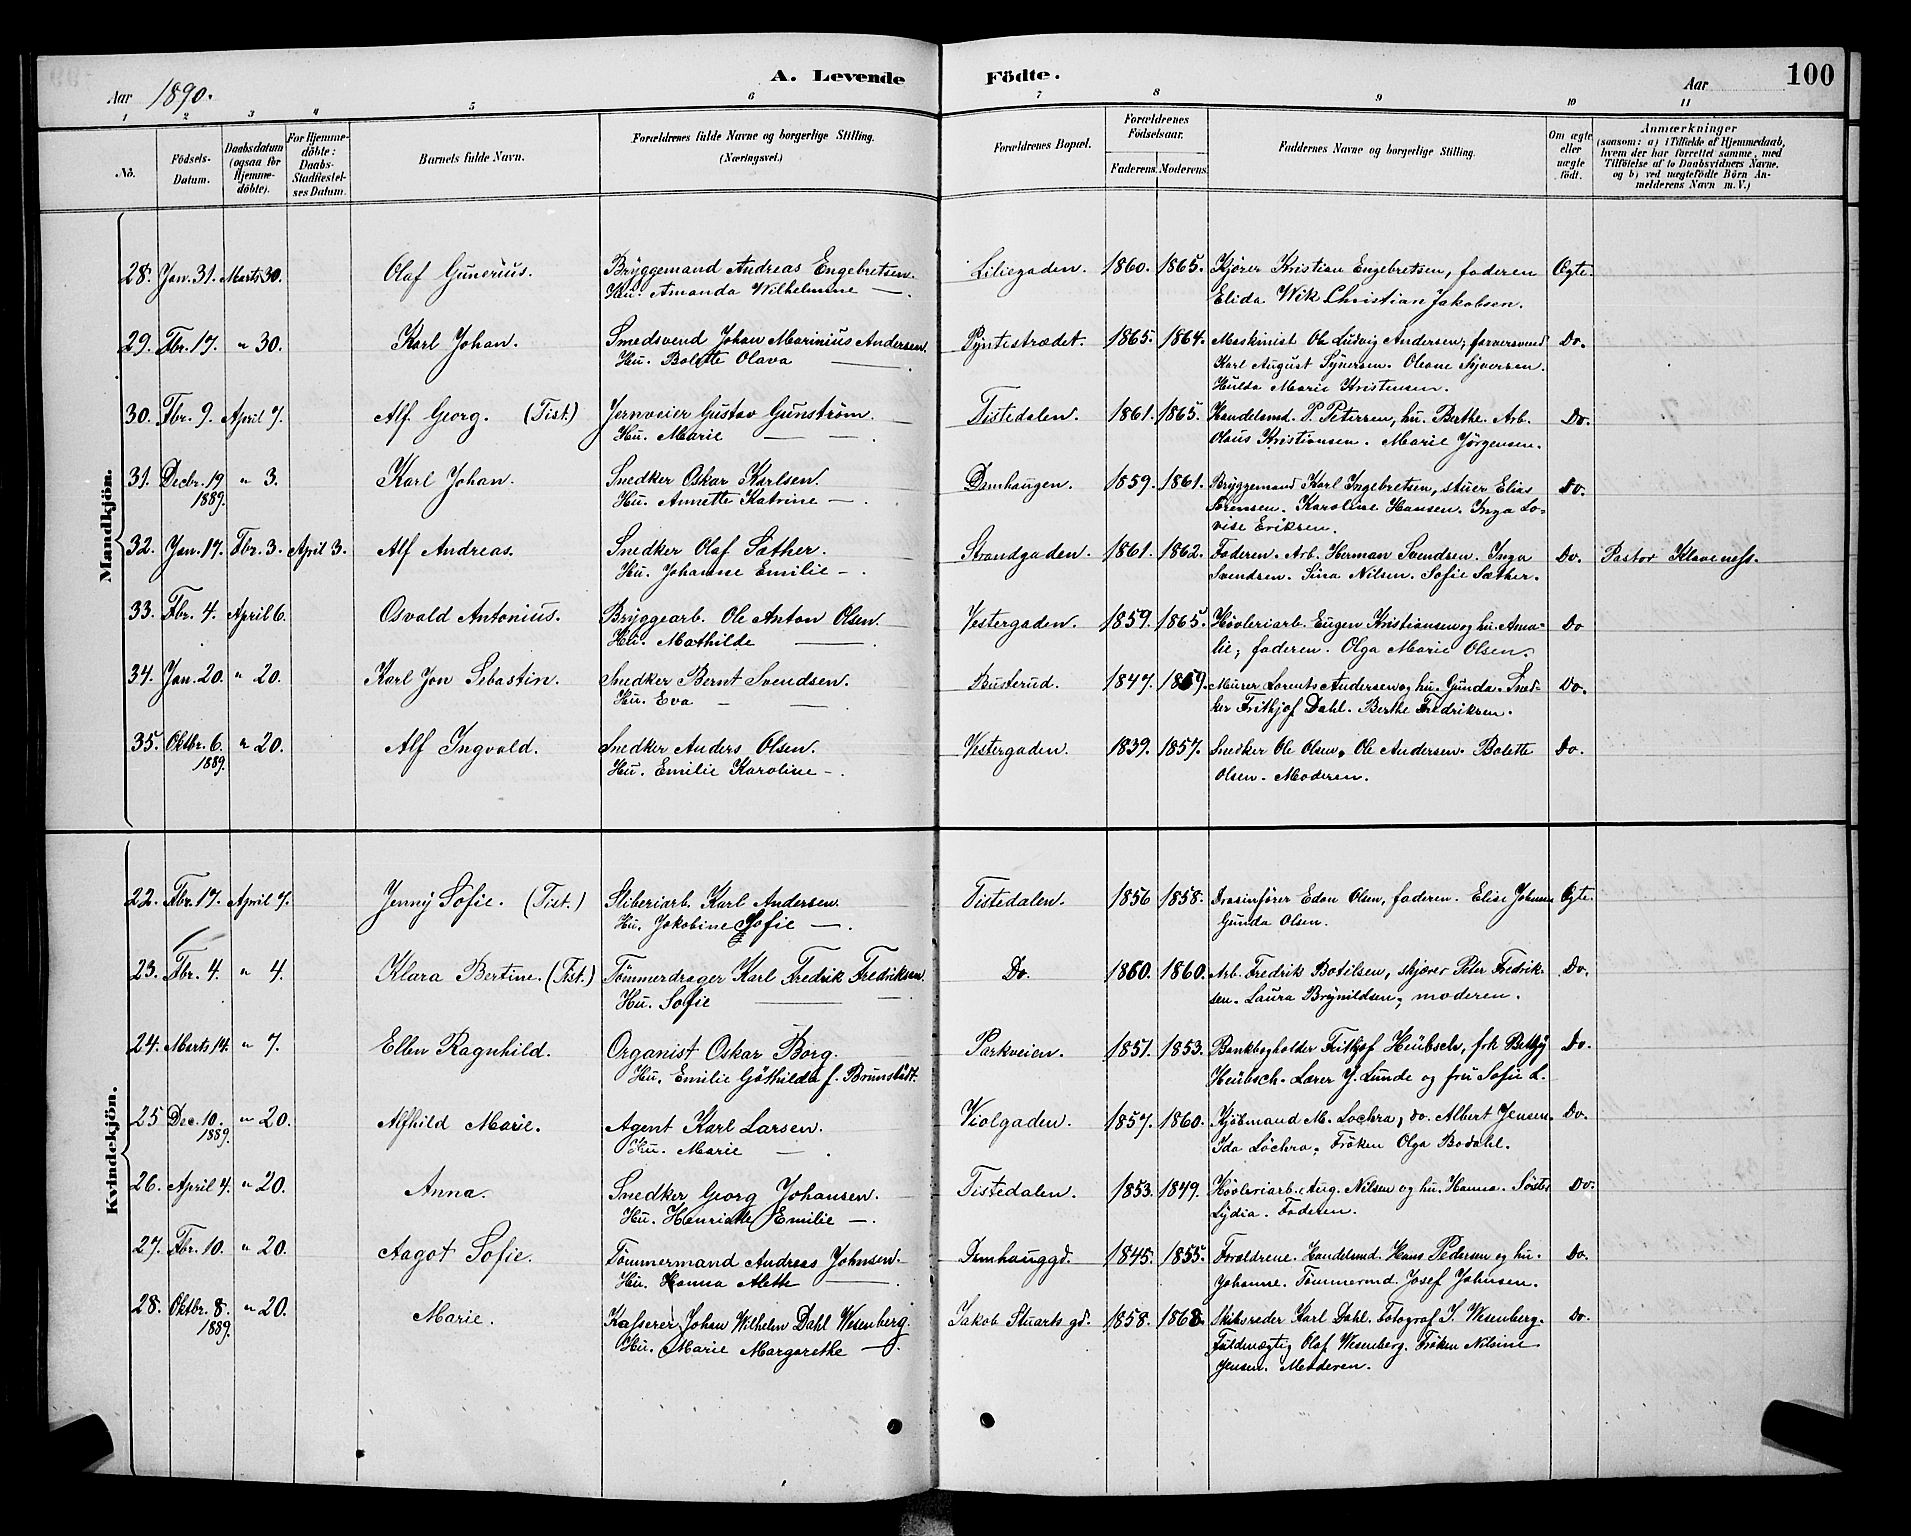 A. Levende Födte.
100
Aar 1890.
Aar
1 2 3 4 5 6 7 8 9 10 11
No.
Födsels-Datum.
Daabsdatum (ogsaa for Hjemme-döbte).
For Hjemme-döbte: Daabs-Stadfæstel-ses Datum.
Barnets fulde Navn.
Forældrenes fulde Navne og borgerlige Stilling. (Næringsvei.)
Forældrenes Bopæl.
Forældrenes Födselsaar.
Faderens. Moderens.
Faddernes Navne og borgerlige Stilling.
Om ægte eller uægte født.
Anmærkninger
(saasom: a) i Tilfælde af Hjemmedaab, hvem der har forrettet samme, med Tilföielse af to Daabsvidners Navne. og b) ved uægtefödte Börn An-melderens Navn m. V.)
Mandkjön.
28. Jan. 31. Marts 30. Olaf Gunerius. Bryggemand Andreas Engebretsen. Liliegaden. 1860. 1865. Kjører Kristian Engebretsen, faderen Ægte.
Hu. Amanda Wilhelmine — . Elida Wik Christian Jakobsen.
29. Fbr. 17. " 30. Karl Johan. Smedsvend Johan Marinius Andersen. Pyntestrædet. 1865. 1864. Maskinist Ole Ludvig Andersen, farversvend Do.
Hu. Bolette Olava — Karl August Synersen. Oleane Syversen.
Hulda Marie Kristensen.
30. Fbr. 9. April 7. Alf Georg. (Tist.) Jernveier Gustav Gunström. Tistedalen. 1861. 1865. Handelsmd. P. Petersen, hu. Berthe. Arb. Do.
Hu. Marie — — . Olaus Kristiansen. Marie Jørgensen.
31. Decbr. 19 1889. " 3. Karl Johan. Snedker Oskar Karlsen. Damhaugen. 1859. 1861. Bryggemand Karl Ingebretsen, stuer Elias Do.
Hu. Annette Katrine — . Sørensen. Karoline Hansen. Inga Lo-
vise Eriksen.
32. Jan. 17. Fbr. 3. April 3. Alf Andreas. Snedker Olaf Sæther. Strandgaden. 1861. 1862. Faderen. Arb. Herman Svendsen. Inga Do. Pastor Klaveness.
Hu. Johanne Emilie — . Svendsen. Sina Nilsen. Sofie Sæther.
33. Fbr. 4. April 6. Osvald Antonius. Bryggearb. Ole Anton Olsen. Vestergaden. 1859. 1865. Høvleriarb. Eugen Kristiansen og hu. Ama- Do
Hu. Mathilde — . lie, faderen. Olga Marie Olsen.
34. Jan. 20. " 20. Karl Jon Sebastin. Snedker Bernt Svendsen. Busterud. 1847. 1859. Murer Lorents Andersen og hu. Gunda. Sned- Do.
Hu. Eva — — . ker Frithjof Dahl. Berthe Fredriksen.
35. Oktbr. 6. 1889. " 20. Alf Ingvald. Snedker Anders Olsen. Vestergaden. 1839. 1857. Snedker Ole Olsen, Ole Andersen. Bolette Do.
Hu. Emilie Karoline — . Olsen. Moderen.
Kvindekjön.
22. Fbr. 17. April 7. Jenny Sofie. (Tist.) Sliberiarb. Karl Andersen. Tistedalen. 1856 1858. Drasinfører Edon Olsen, faderen. Elise Johnsen Ægte.
Hu. Jakobine Sofie — . Gunda Olsen.
23. Fbr. 4. " 4. Klara Bertine. (Tist.) Tömmerdrager Karl Fredrik Fredriksen. Do. 1860. 1860. Arb. Fredrik Botilsen, skjærer Peter Fredrik- Do.
Hu. Sofie — — sen. Laura Brynildsen, moderen.
24. Marts 14. " 7. Ellen Ragnhild. Organist Oskar Borg. Parkveien. 1851. 1853. Bankbogholder Frithjof Heübsch, frk Betsy Do.
Hu. Emilie Göthilda f. Brunstädt. Heübsch. Lærer J. Lunde og fru Sofie L.
25 Dec. 10. 1889. " 20. Alfhild Marie. Agent Karl Larsen. Violgaden. 1857. 1860. Kjöbmand M. Lochra, do. Albert Jensen. Do.
Hu. Marie — . Ida Löchra. Fröken Olga Bodahl.
26. April 4. " 20. Anna. Snedker Georg Johansen. Tistedalen. 1853. 1849. Høvleriarb. Aug. Nilsen og hu. Hanna. Søster Do.
Hu. Henriette Emilie — . Lydia. Faderen.
27. Fbr. 10. " 20. Aagot Sofie. Tömmermand Andreas Johnsen. Damhauggd. 1845. 1855. Forældrene. Handelsmd. Hans Pedersen og hu. Do.
Hu. Hanna Alette — . Johanne. Tømmermd Josef Johnsen.
28. Oktbr. 8. 1889. " 20. Marie. Kasserer Johan Wilhelm Dahl Wesenberg. Jakob Stuarts gd. 1858. 1868. Skibsreder Karl Dahl. Fotograf I. Wesenberg. Do.
Hu. Marie Margarethe — . Fuldmægtig Olaf Wesenberg. Frøken Nilsine
Jensen. Moderen.